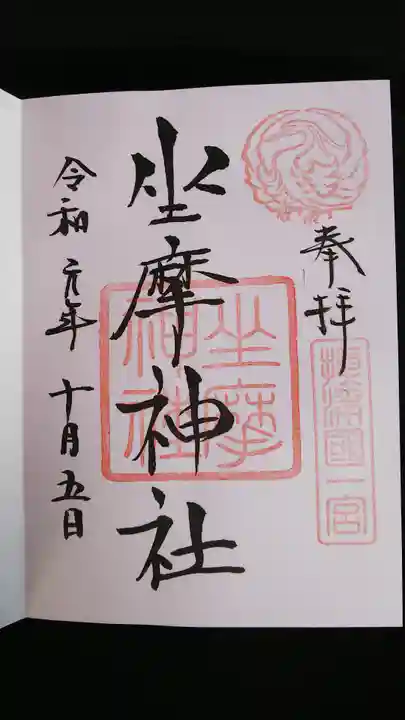 奉拝
摂津国一宮
坐摩神社
坐摩
神社
令和元年十月五日